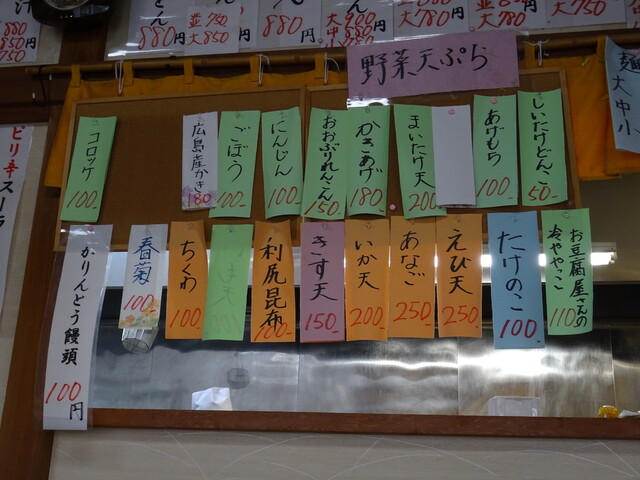 880
850円
750
880円
並750
大850
880円
大900
中880
880円
大780円
並880
大780
大750
野菜天ぷら
麺
大中小
しいたけどんこ
50-
あげもち
100-
まいたけ天
200
かきあげ
180
おおぶりれんこん
150-
にんじん
100-
ごぼう
100-
広島産かき
180-
コロッケ
100-
お豆腐屋さんの
冷ややっこ
110-
たけのこ
100-
えび天
250-
あなご
250-
いか天
200-
きす天
150-
利尻昆布
100-
ちくわ
100-
春菊
100-
かりんとう饅頭
100円
ピリ辛スーラ